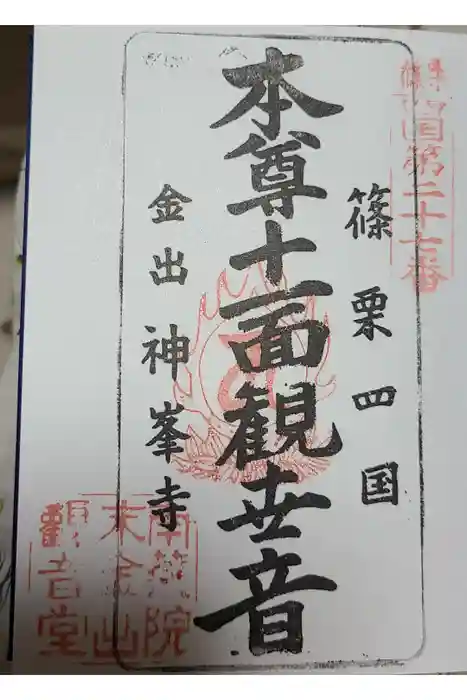 四国第二十七番
篠栗四国
本尊十一面観世音
金出神峰寺
南蔵院
末金出
觀音堂